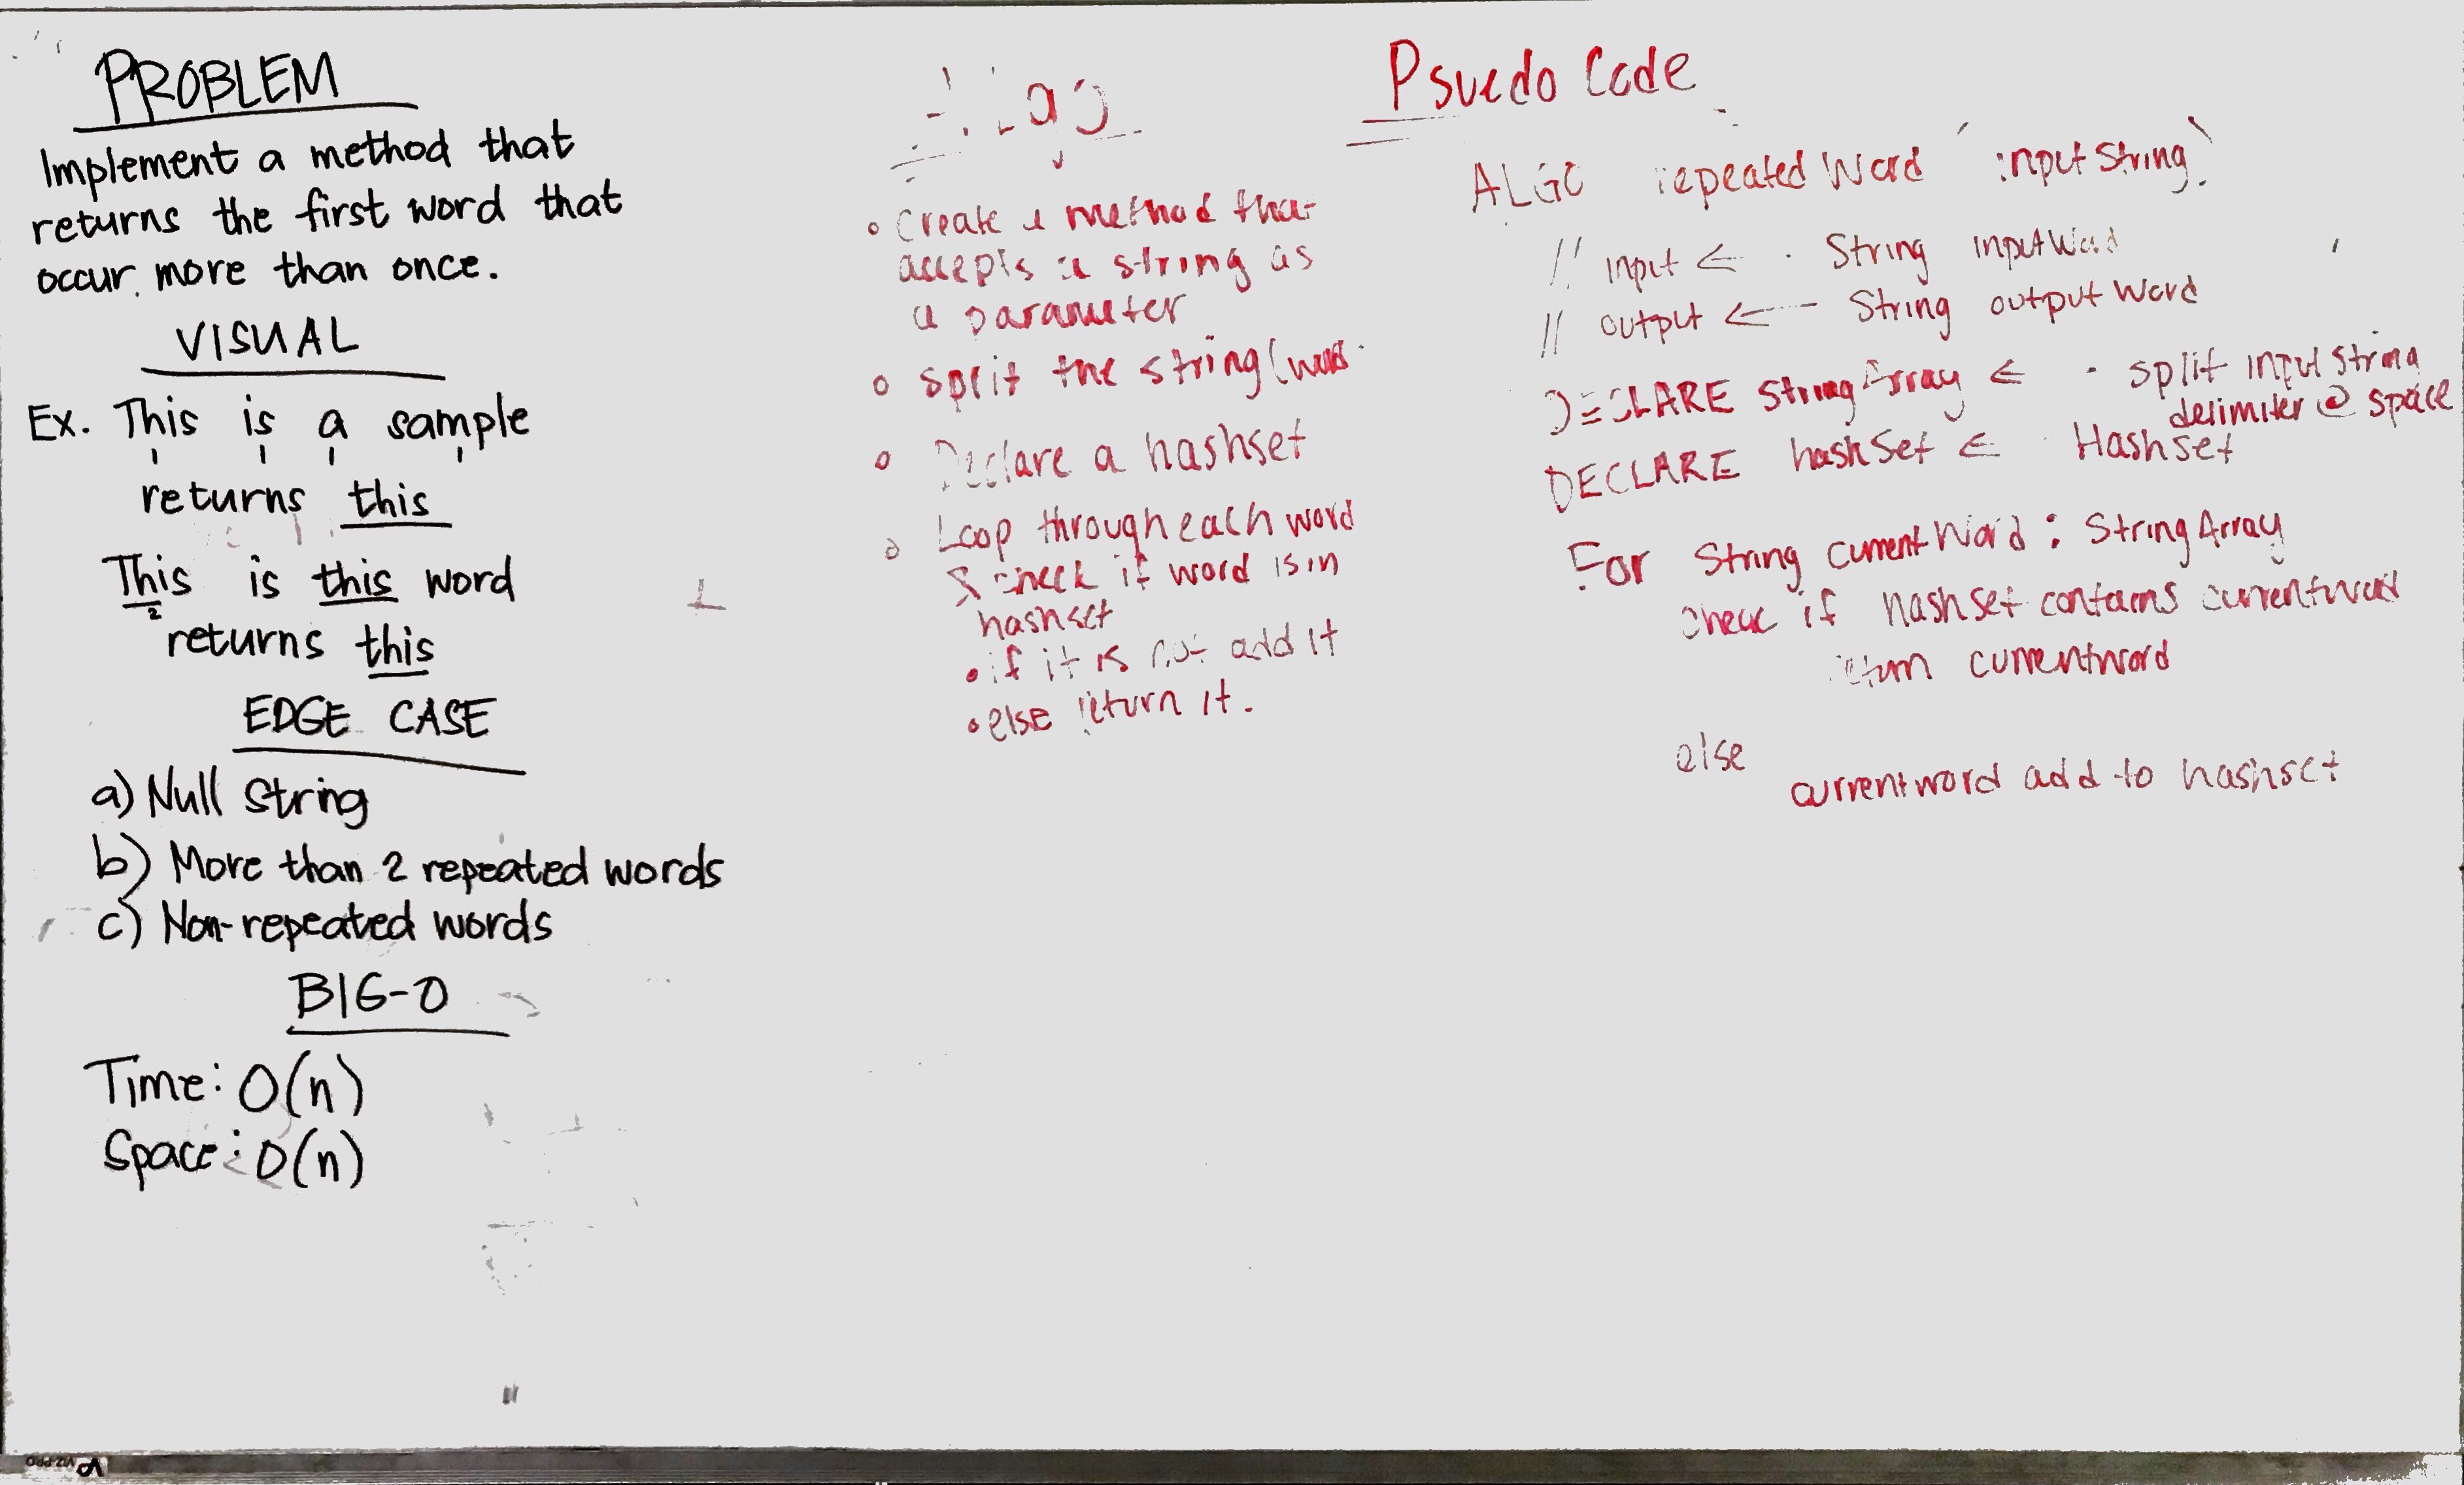 PROBLEM
Implement a method that
returns the first word that
occur more than once.
VISUAL
Ex. This is a sample
returns this
This is this word
2
returns this
EDGE CASE
a) Null String
b) More than 2 repeated words
c) Non-repeated words
BIG-O
Time: O(n)
Space: O(n)
Create a method that
accepts a string as
a parameter
split the string (
Declare a hashset
Loop through each word
& check if word is in
hashset
if it is not add it
else return it.
Psuedo Code
ALGO repeatedWord (inputString)
// input ← String inputWord
// output ← String outputWord
DECLARE StringArray ← split input string
delimiter @ space
DECLARE hashSet ← HashSet
For String currentWord : StringArray
check if hashset contains currentword
return currentword
else
currentword add to hashset
VIZ-PRO